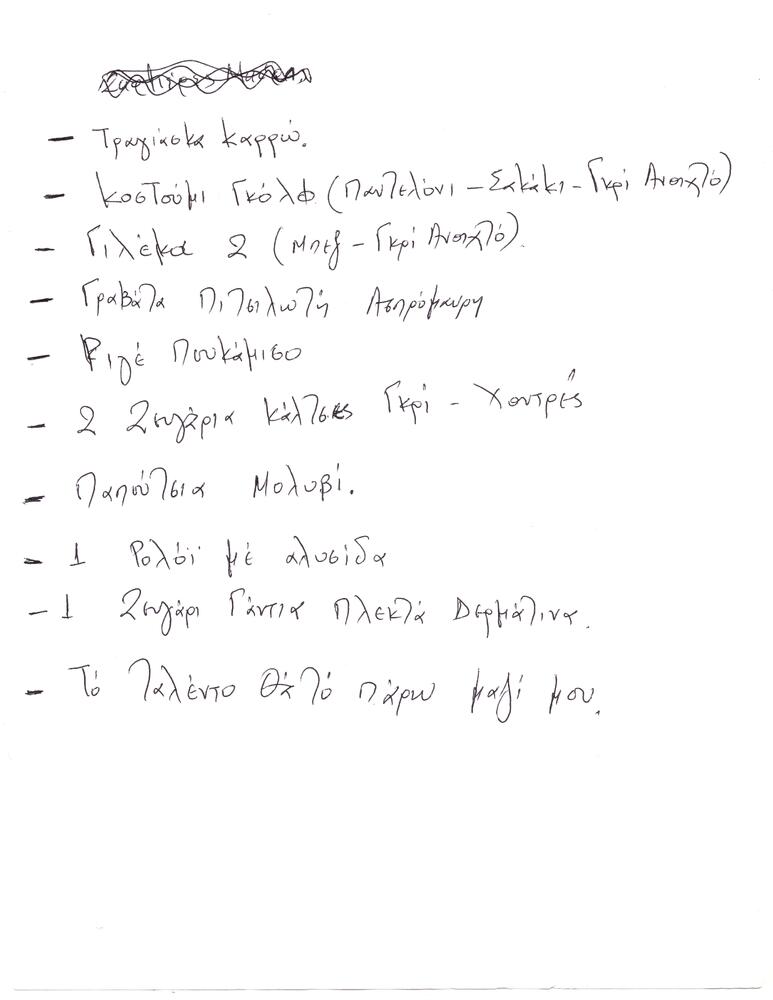 - Τραγιάσκα καρρώ.
- Κοστούμι Γκόλφ (Παντελόνι - Σακάκι - Γκρί Ανοιχτό)
- Γιλέκα 2 (Μπεζ - Γκρί Ανοιχτό).
- Γραβάτα Πιτσιλωτή Ασπρόμαυρη
- Ριγέ Πουκάμισο
- 2 Ζευγάρια κάλτσες Γκρί - Χοντρές
- Παπούτσια Μολυβί.
- 1 Ρολόϊ μέ αλυσίδα
- 1 Ζευγάρι Γάντια Πλεκτά Δερμάτινα.
- Τό Ταλέντο θά τό πάρω μαζί μου.